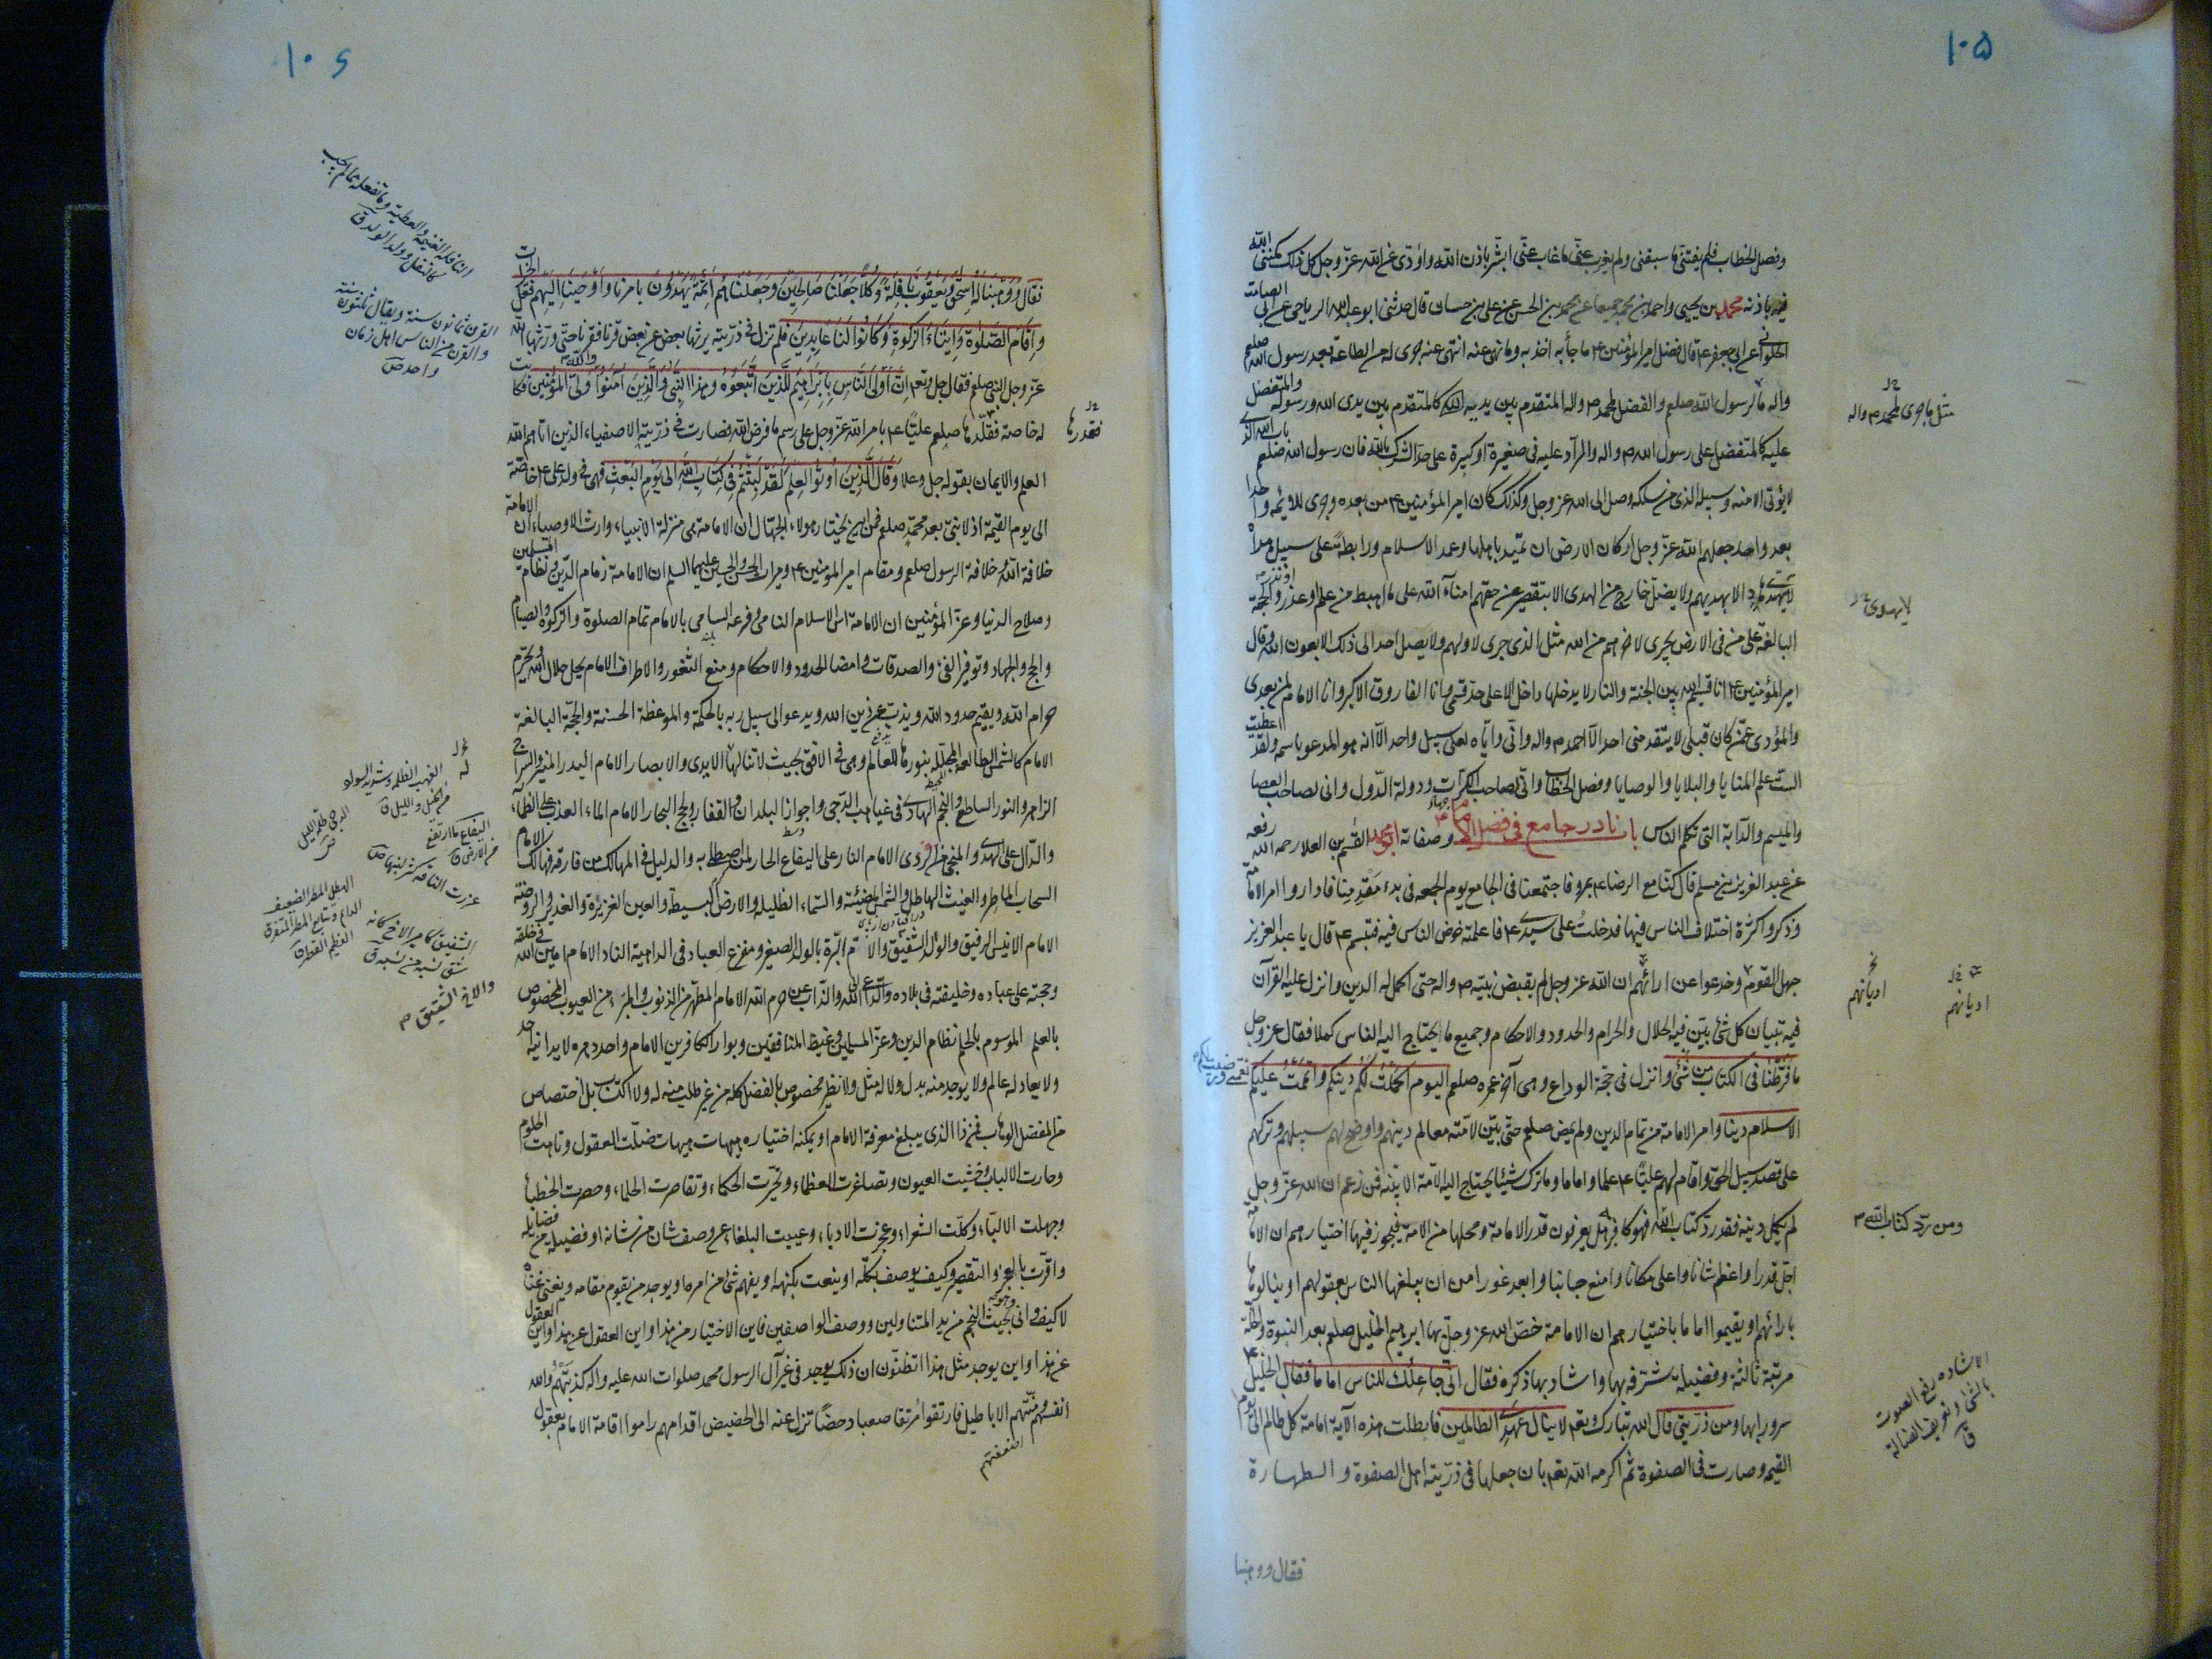 ١٠٥
وفصل الخطاب فلم يفتنى ما سبقنى ولم يعزب عنّى ما غاب عنّى ابشّر باذن الله واؤدّى عن الله عزّ وجل كل ذلك مكّننى الله
فيه باذنه محمد بن يحيى واحمد بن محمد جميعا عن محمد بن الحسن عن على بن حسان قال حدثنى ابو عبد الله الرياحى عن ابى الصامت
الحلوانى عن ابى جعفر ع قال فضل امير المؤمنين ع ما جاء به اخذ به وما نهى عنه انتهى عنه جرى له من الطاعة بعد رسول الله صلعم
واله ما لرسول الله صلعم والفضل لمحمد ص واله المتقدم بين يديه كالمتقدم بين يدى الله ورسوله والمتفضل
عليه كالمتفضل على رسول الله ص واله والرآد عليه فى صغيرة او كبيرة على حد الشرك بالله فان رسول الله صلعم باب الله الذى
لا يؤتى الا منه وسبيله الذى من سلكه وصل الى الله عز وجل وكذلك كان امير المؤمنين ع من بعده وجرى للائمه واحدا
بعد واحد جعلهم الله عزّ وجل اركان الارض ان تميد باهلها وعمد الاسلام ورابطة على سبيل هداه
لا يهتدى هاد الا بهديهم ولا يضلّ خارج من الهدى الا بتقصير عن حقهم امنآء الله على ما اهبط من علم او عذر او نذر والحجة
البالغة على من فى الارض يجرى لاخرهم من الله مثل الذى جرى لاولهم ولا يصل احد الى ذلك الا بعون الله وقال
امير المؤمنين ع انا قسيم الله بين الجنة والنار لا يدخلها داخل الا على حدّ قسمى وانا الفاروق الاكبر وانا الامام لمن بعدى
والمؤدى عمّن كان قبلى لا يتقدمنى احد الّا احمد ص واله وانّى وايّاه لعلى سبيل واحد الّا انه هو المدعو باسمه ولقد اعطيت
الستّ علم المنايا والبلايا والوصايا وفصل الخطاب وانّى لصاحب الكرّات ودولة الدّول وانى لصاحب العصا
والميسم والدّابة التى تكلم الناس باب نادر جامع فى فضل الامام وصفاته ابو محمد القسم بن العلا رحمه الله رفعه
عن عبد العزيز بن مسلم قال كنّا مع الرضا ع بمرو فاجتمعنا فى الجامع يوم الجمعه فى بدء مقدمنا فاداروا امر الامامة
وذكروا كثرة اختلاف الناس فيها فدخلت على سيدى ع فاعلمته خوض الناس فيه فتبسم ع قال يا عبد العزيز
جهل القوم وخدعوا عن ارائهم ان الله عز وجل لم يقبض نبيّه ص واله حتى اكمل له الدين وانزل عليه القرآن
فيه تبيان كل شئ بيّن فيه الحلال والحرام والحدود والاحكام وجميع ما يحتاج اليه الناس كملا فقال عزوجل
ما فرّطنا فى الكتاب من شئ وانزل فى حجّة الوداع وهى آخر عمره صلعم اليوم اكملت لكم دينكم واتممت عليكم نعمتى ورضيت لكم
الاسلام دينا وامر الامامة من تمام الدين ولم يمض صلعم حتى بيّن لامّته معالم دينهم واوضح لهم سبيلهم وتركهم
على قصد سبيل الحقّ واقام لهم عليّا ع علما واماما وما ترك شيئا يحتاج اليه الامّة الا بيّنه فمن زعم ان الله عزّ وجل
لم يكمل دينه فقد ردّ كتاب الله فهو كافر هل يعرفون قدر الامامة ومحلها من الامة فيجوز فيها اختيارهم ان الامامة
اجل قدرا واعظم شانا واعلى مكانا وامنع جانبا وابعد غورا من ان يبلغها الناس بعقولهم او ينالوها
بارائهم او يقيموا اماما باختيارهم ان الامامة خصّ الله عز وجل بها ابرهيم الخليل صلعم بعد النبوة والخلّة
مرتبة ثالثة وفضيلة شرّفه بها واشاد بها ذكره فقال انّى جاعلك للناس اماما فقال الخليل ع
سرورا بها ومن ذرّيتى قال الله تبارك وتع لا ينال عهدى الظالمين فابطلت هذه الآية امامة كل ظالم الى يوم
القيمه وصارت فى الصفوة ثم اكرمه الله تع بان جعلها فى ذرّيته اهل الصفوة والطهارة
فقال ووهبنا
مثل ما جرى لمحمد ص واله
لا يهدى
اديانهم
اديانهم
ومن ردّ كتاب الله
الاشاده رفع الصوت
بالشئ وتعريف الضالة
ق
١٠٦
فقال ووهبنا له اسحق ويعقوب نافلة وكلا جعلنا صالحين وجعلناهم ائمّة يهدون بامرنا واوحينا اليهم فعل الخيرات
واقام الصلوة وايتاء الزكوة وكانوا لنا عابدين فلم تزل فى ذرّيته يرثها بعض عن بعض قرنا فقرنا حتى ورّثها الله
عزّ وجل النبى صلعم فقال جل وتع ان اولى الناس بابراهيم للذين اتّبعوه وهذا النبى والذين امنوا والله ولىّ المؤمنين فكانت
له خاصة فقلّدها صلعم عليّا ع بامر الله عزّ وجل على رسم ما فرض الله فصارت فى ذرّيته الاصفياء الذين اتاهم الله
العلم والايمان بقوله جل وعلا وقال الذين اوتوا العلم لقد لبثتم فى كتاب الله الى يوم البعث فهى فى ولد على ع خاصّة
الى يوم القيمة اذ لا نبىّ بعد محمد صلعم فمن اين يختار هولاء الجهّال ان الامامة هى منزلة الانبياء وارث الاوصياء ان الامامة
خلافة الله وخلافة الرسول صلعم ومقام امير المؤمنين ع وميراث الحسن والحسين عليهما السلم ان الامامة زمام الدّين ونظام المسلمين
وصلاح الدنيا وعزّ المؤمنين ان الامامة اسّ الاسلام النامى وفرعه السامى بالامام تمام الصلوة والزكوة والصيام
والحج والجهاد وتوفير الفئ والصدقات وامضا الحدود والاحكام ومنع الثغور والاطراف الامام يحل حلال الله ويحرّم
حرام الله ويقيم حدود الله ويذبّ عن دين الله ويدعو الى سبيل ربه بالحكمة والموعظة الحسنة والحجّة البالغة
الامام كالشمس الطالعة المجلّلة بنورها للعالم وهى فى الافق بحيث لا تنالها الايدى والابصار الامام البدر المنير والسراج
الزاهر والنور الساطع والنجم الهادى فى غياهب الدّجى واجواز البلدان والقفار ولجج البحار الامام الماء العذب على الظمآء
والدّال على الهدى والمنجى من الرّدى الامام النار على اليفاع الحار لمن اصطلى به والدليل فى المهالك من فارقه فهالك الامام
السحاب الماطر والغيث الهاطل والشمس المضيئة والسّماء الظليلة والارض البسيطة والعين الغزيزة والغدير والروضة
الامام الانيس الرفيق والوالد الشفيق والام البرّة بالولد الصغير ومفزع العباد فى الداهية الناد الامام امين الله فى خلقه
وحجّته على عباده وخليفته فى بلاده والدّاعى الى الله والذّاب عن حرم الله الامام المطهّر من الذنوب والمبرّء من العيوب المخصوص
بالعلم الموسوم بالحلم نظام الدين وعزّ المسلمين وغيظ المنافقين وبوار الكافرين الامام واحد دهره لا يدانيه احد
ولا يعادله عالم ولا يوجد منه بدل ولا له مثل ولا نظير مخصوص بالفضل كله من غير طلب منه له ولا اكتساب بل اختصاص
من المفضل الوهّاب فمن ذا الذى يبلغ معرفة الامام او يمكنه اختياره هيهات هيهات ضلّت العقول وتاهت الحلوم
وحارت الالباب وخشيت العيون وتصاغرت العظماء وتحيّرت الحكماء وتقاصرت الحلماء وحصرت الخطباء
وجهلت الالبّاء وكلّت الشعراء وعجزت الادباء وعييت البلغاء عن وصف شان من شانه او فضيلة من فضايله
واقرّت بالعجز والتقصير وكيف يوصف بكلّه او ينعت بكنهه او يفهم شئ من امره او يوجد من يقوم مقامه ويغنى غناه
لا كيف وانّى وهو بحيث النجم من يد المتناولين ووصف الواصفين فاين الاختيار من هذا واين العقول عن هذا واين
عن هذا واين يوجد مثل هذا اتظنّون ان ذلك يوجد فى غير آل الرسول محمد صلوات الله عليه واله كذبتهم والله
انفسهم ومنّتهم الاباطيل فارتقوا مرتقا صعبا دحضا تزل عنه الى الحضيض اقدامهم راموا اقامة الامام بعقول
النافلة الغنيمة والعطية وما تفعله مما لم يجب
كالنفل وولد الولد ق
القرن ثمانون سنة ويقال ثلثون سنة
والقرن من الناس اهل زمان
واحد ص
الدجى ظلمة الليل
اليفاع ما ارتفع
من الارض ق
الهطل المطر الضعيف
الدائم وتتابع المطر المتفرق
العظيم القطر ق
الشقيق كامير الاخ كانه
شقّ نسبه من نسبه ق
والاخ الشقيق